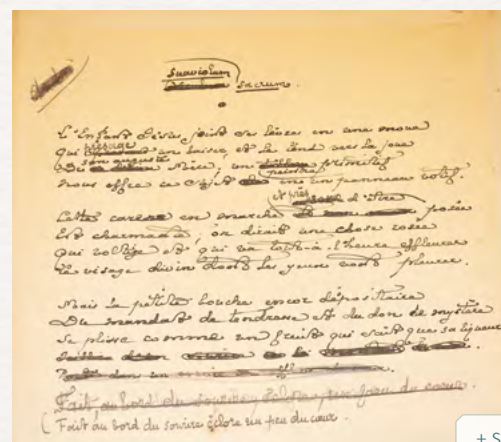 Suaviolum
sacrum.
L'Enfant Jésus joint ses lèvres en une moue
Qui présage un baiser, et la tend vers la joue
De son auguste Mère, un peintre primitif
Nous offre ce sujet en un panneau votif.
Cette caresse en marche et près d'être posée
Est charmante, on dirait une chose rosée
Qui voltige et qui va tout-à-l'heure effleurer
Le visage divin dont les yeux vont pleurer.
Mais la petite bouche encor dépositaire
Du mandat de tendresse et du don de mystère
Se plisse comme un fruit qui sait que sa liqueur
Fait, au bord du sourire, éclore un peu du cœur.
( Fait, au bord du sourire éclore un peu du cœur.
+ S